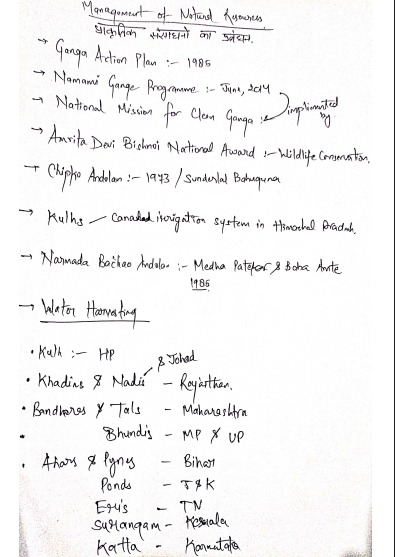 Management of Natural Resources
प्राकृतिक संसाधनों का प्रबंधन.
→ Ganga Action Plan :- 1985
→ Namami Gange Programme :- June, 2014
→ National Mission for Clean Ganga :- implimented by
→ Amrita Devi Bishnoi National Award :- Wildlife Conservation.
→ Chipko Andolan :- 1973 / Sunderlal Bahuguna
→ Kulhs - irrigation system in Himachal Pradesh.
→ Narmada Bachao Andolan :- Medha Patekar & Baba Amte
1985
→ Water Harvesting
• Kulh :- HP
& Johad
• Khadins & Nadis - Rajasthan.
• Bandharas & Tals - Maharashtra
• Bhundis - MP & UP
• Ahars & Pynes - Bihar
Ponds - J & K
Eri's - TN
Surangam - Kerala
Katta - Karnataka